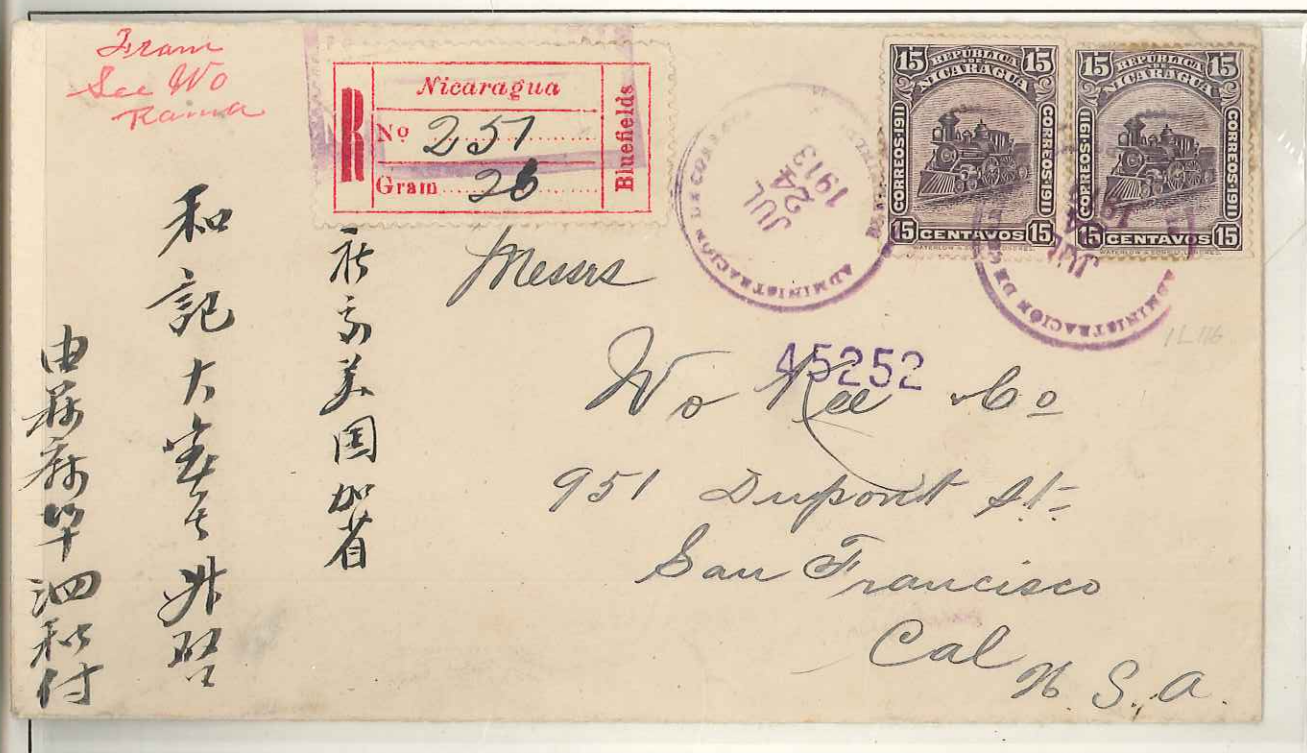 From
See Wo
Rama
Nicaragua
R
Nº 257
Gram 26
Bluefields
ADMINISTRACIÓN DE CORREOS
JUL
24
1913
15 REPÚBLICA DE NICARAGUA 15
CORREOS·1911
CORREOS·1911
15 CENTAVOS 15
WATERLOW & SONS
15 REPÚBLICA DE NICARAGUA 15
CORREOS·1911
CORREOS·1911
15 CENTAVOS 15
WATERLOW & SONS
JUL
ADMINISTRACIÓN DE
1L116
Messrs
45252
Wo Kee & Co
951 Dupont St-
San Francisco
Cal
U.S.A.
美国加省
和記大宝号升啓
由 泗和付